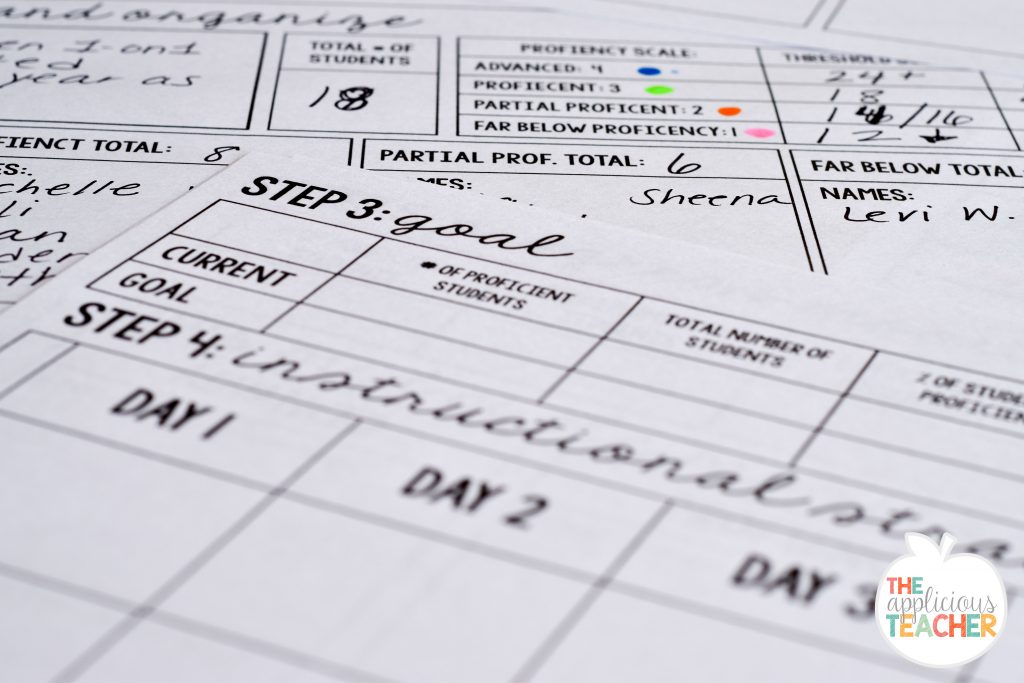 and organize
1-on1
year as
TOTAL # OF
STUDENTS
18
PROFIENCY SCALE:
THRESHOLD
ADVANCED: 4
24+
PROFIECENT: 3
18
PARTIAL PROFICENT: 2
/16
FAR BELOW PROFICENCY: 1
12 ↓
TOTAL: 8
PARTIAL PROF. TOTAL: 6
Sheena
FAR BELOW TOTAL:
NAMES:
Levi W.
STEP 3: goal
# OF PROFICIENT
STUDENTS
TOTAL NUMBER OF
STUDENTS
% OF
CURRENT
GOAL
STEP 4: instructional
DAY 1
DAY 2
DAY 3
THE
applicious
TEACHER